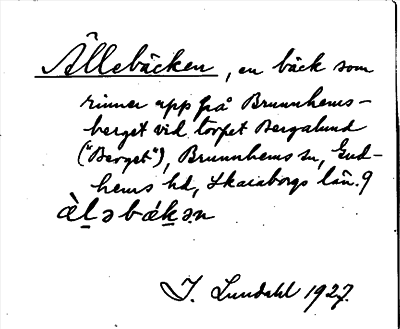 Ällebäcken, en bäck som
rinner upp på Brunnhems-
berget vid torpet Bergalund
("Berget"), Brunnhems sn, Gud-
hems hd, Skaraborgs län.
àl̠əbák̠ən
J. Lundahl 1927.